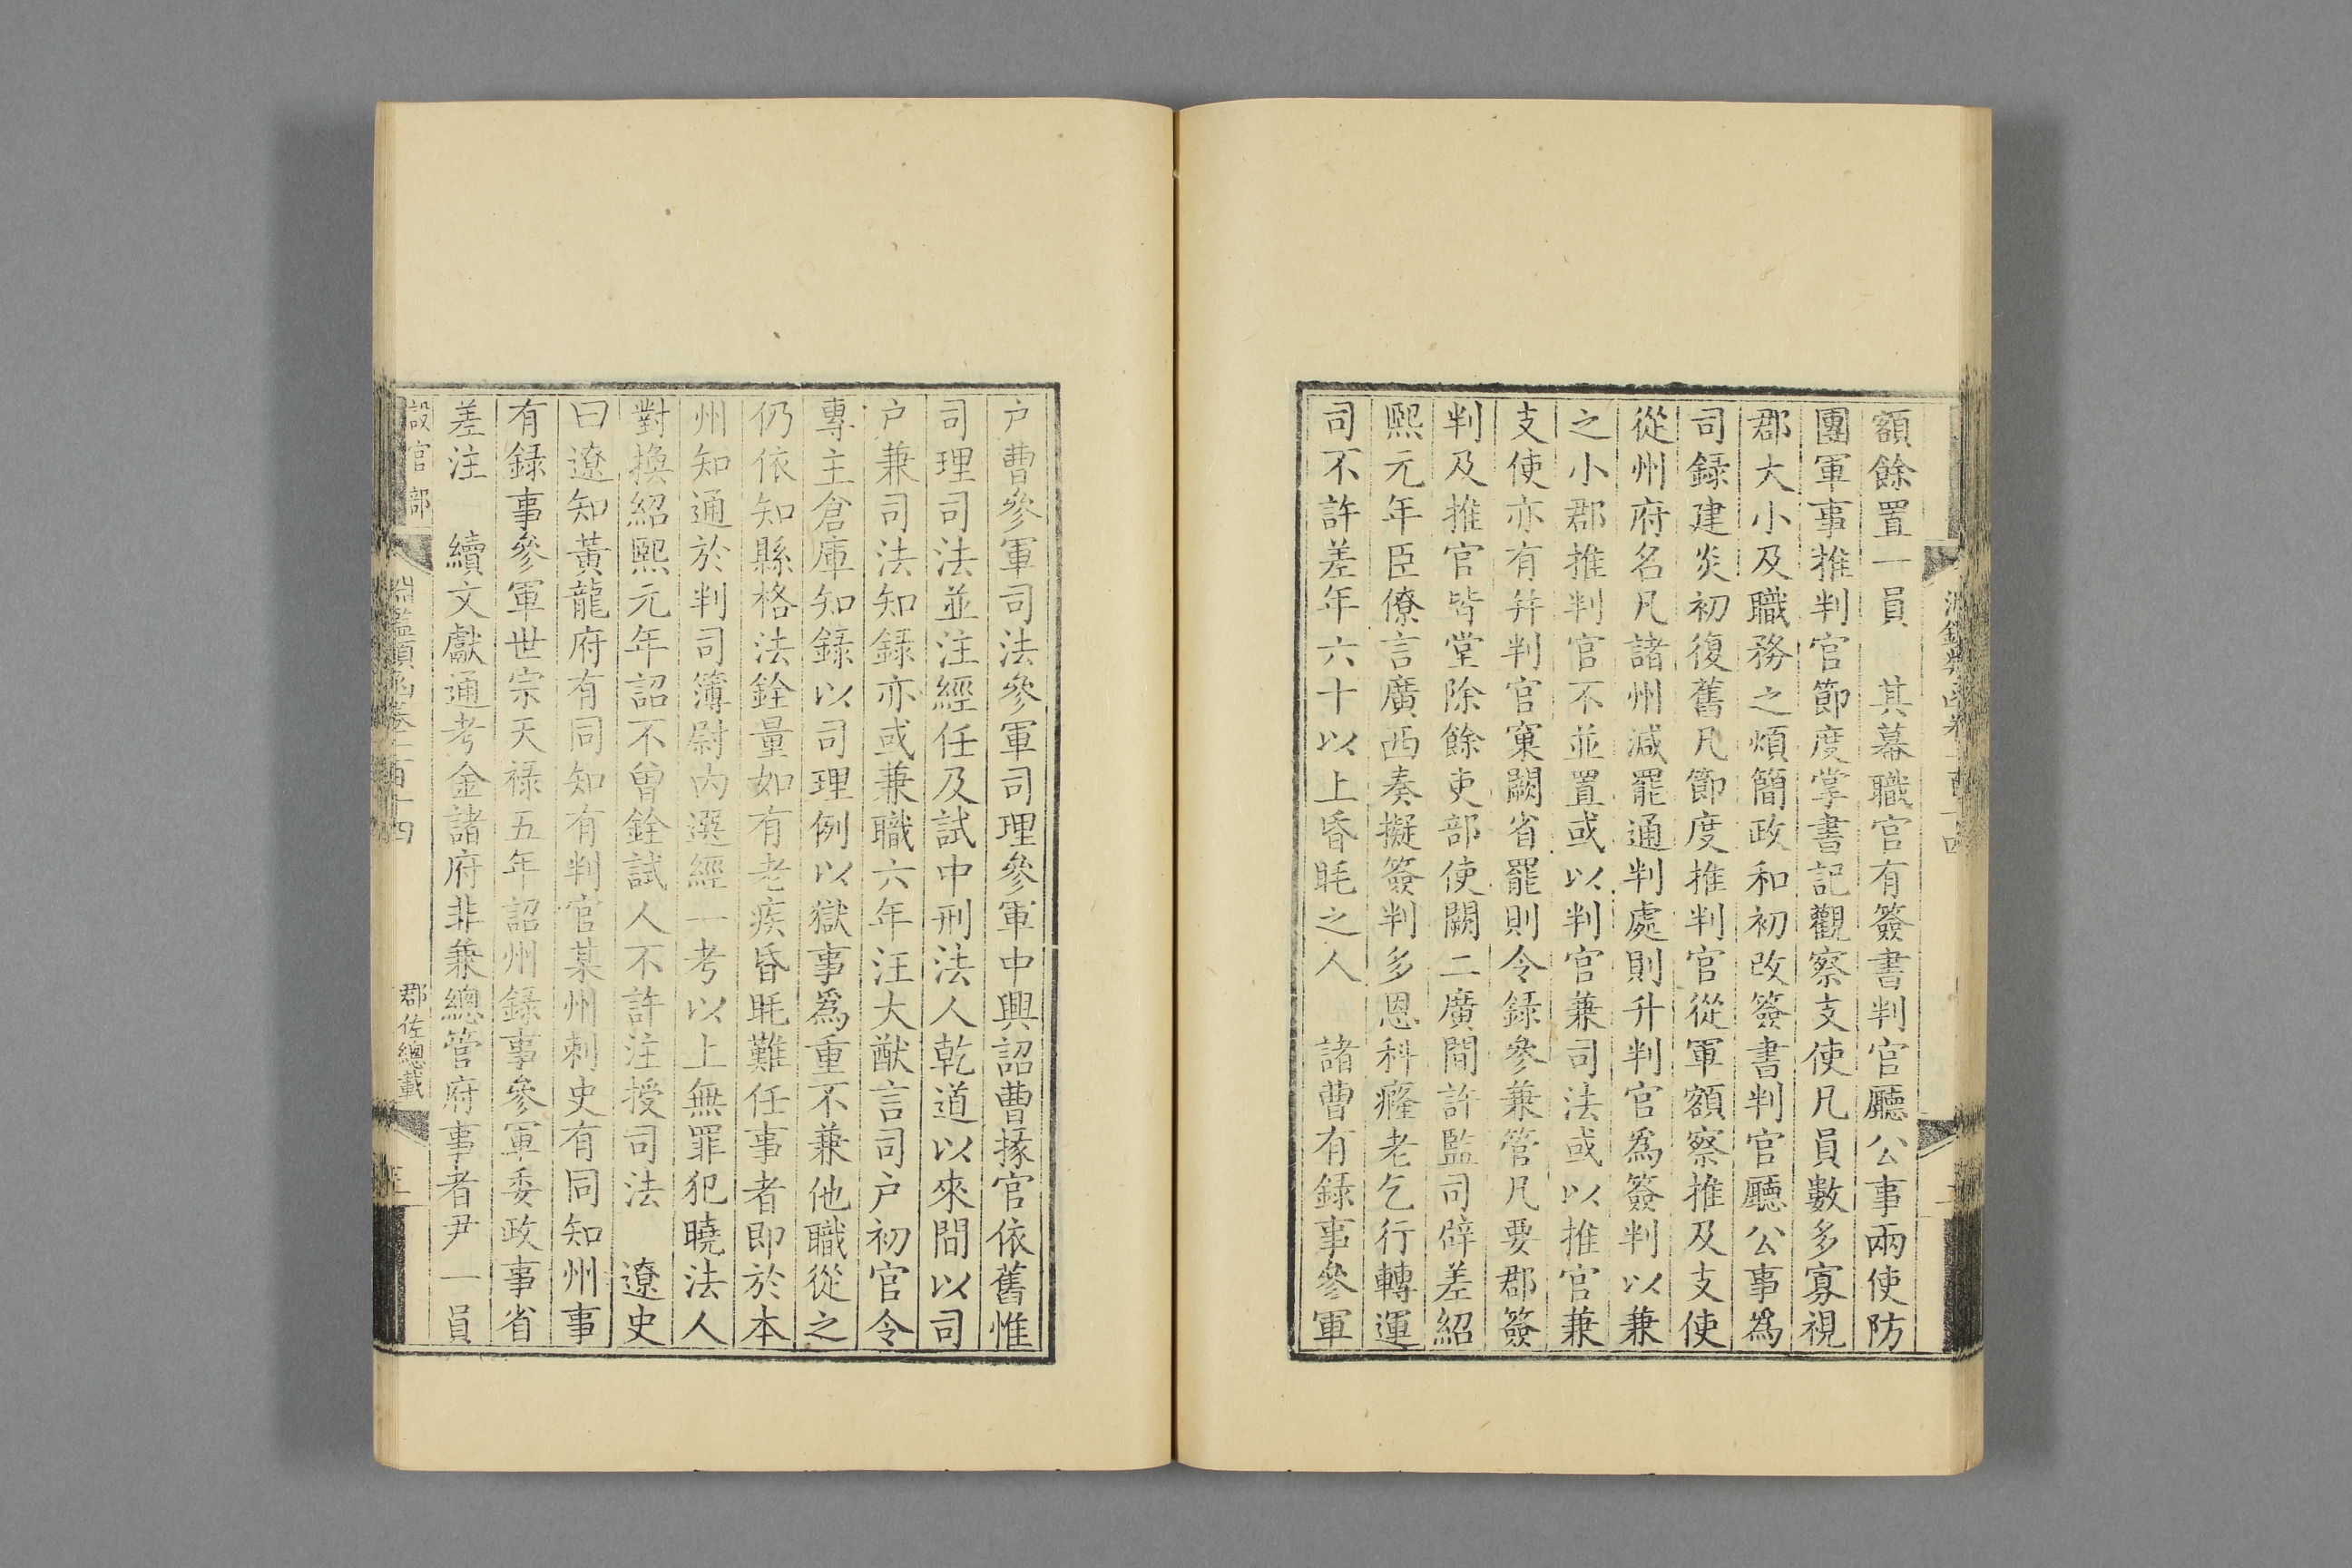 額餘置一員　其幕職官有簽書判官廳公事兩使防
團軍事推判官節度掌書記觀察支使凡員數多寡視
郡大小及職務之煩簡政和初改簽書判官廳公事爲
司録建炎初復舊凡節度推判官從軍額察推及支使
從州府名凡諸州減罷通判處則升判官爲簽判以兼
之小郡推判官不並置或以判官兼司法或以推官兼
支使亦有并判官窠闕省罷則令録參兼管凡要郡簽
判及推官皆堂除餘吏部使闕二廣間許監司辟差紹
熙元年臣僚言廣西奏擬簽判多恩科癃老乞行轉運
司不許差年六十以上昏眊之人　諸曹有録事參軍
户曹參軍司法參軍司理參軍中興詔曹掾官依舊惟
司理司法並注經任及試中刑法人乾道以來間以司
户兼司法知録亦或兼職六年汪大猷言司户初官令
專主倉庫知録以司理例以獄事爲重不兼他職從之
仍依知縣格法銓量如有老疾昏眊難任事者即於本
州知通於判司簿尉内選經一考以上無罪犯曉法人
對換紹熙元年詔不曾銓試人不許注授司法　遼史
曰遼知黃龍府有同知有判官某州刺史有同知州事
有録事參軍世宗天禄五年詔州録事參軍委政事省
差注　續文獻通考金諸府非兼總管府事者尹一員
設官部
淵鑑類函卷一百十四
郡佐總載